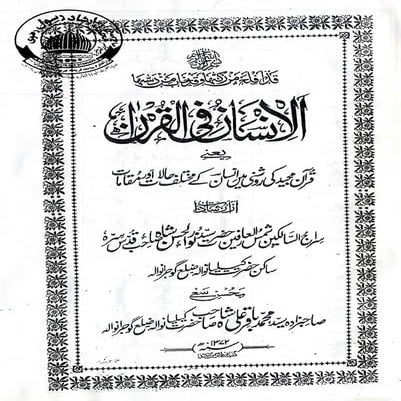 قد افلح من زکٰها وقد خاب من دسٰها
الانسان فی القرآن
یعنے
قرآن مجید کی روشنی میں انسان کے مختلف حالات اور مقامات
از
سراج السالکین شمس العارفین حضرت سید نور الحسن شاہ صاحب قدس سرہ
ساکن حضرت کیلیانوالہ ضلع گوجرانوالہ
بحسن سعی
صاحبزادہ سید محمد باقر علی شاہ صاحب حضرت کیلیانوالہ ضلع گوجرانوالہ
۱۳۷۲